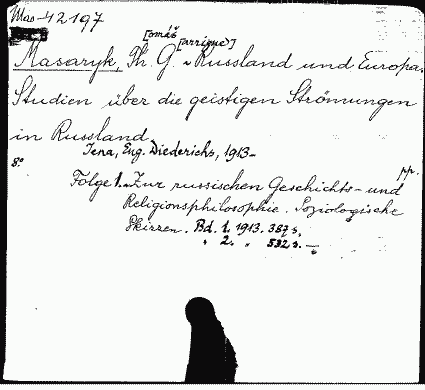 Mas-42197
[omáš
[arrigue]
Masaryk, Th. G. - Russland und Europa.
Studien über die geistigen Strömungen
in Russland
Jena, Eug. Diederichs, 1913-
8°
pp.
Folge 1. Zur russischen Geschichts- und
Religionsphilosophie. Soziologische
Skizzen. Bd. 1. 1913. 387 s.
" 2. " 532 s. -